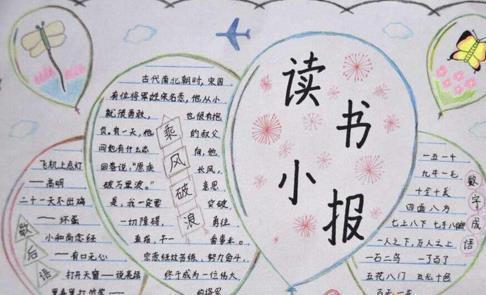 读书
小报
乘风破浪
古代南北朝时,宋国
有位将军姓宗名悫,他从小
就很勇敢,也很有抱
负。有一天,他的叔父
问他有什么志向,他
回答说:“愿乘长风,
破万里浪。”意思
是,我一定要突破
一切障碍,勇往
直前,干一番事业。
宗悫经过苦练,努力奋斗,
终于成为一位伟大
歇后语
飞机上点灯
——高明
二十一天不出鸡
——坏蛋
小和尚念经
——有口无心
打开天窗——说亮话
数字成语
一五一十
九牛一毛
十全十美
四面八方
七上八下
一人之下,万人之上
一石二鸟 一了百了
五花八门 五光十色